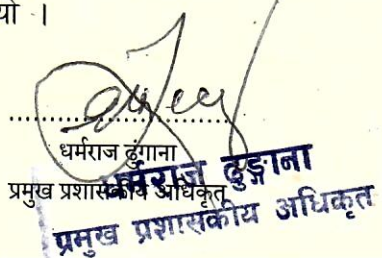 यो ।
धर्मराज ढुंगाना
प्रमुख प्रशासकीय अधिकृत
धर्मराज ढुङ्गाना
प्रमुख प्रशासकीय अधिकृत